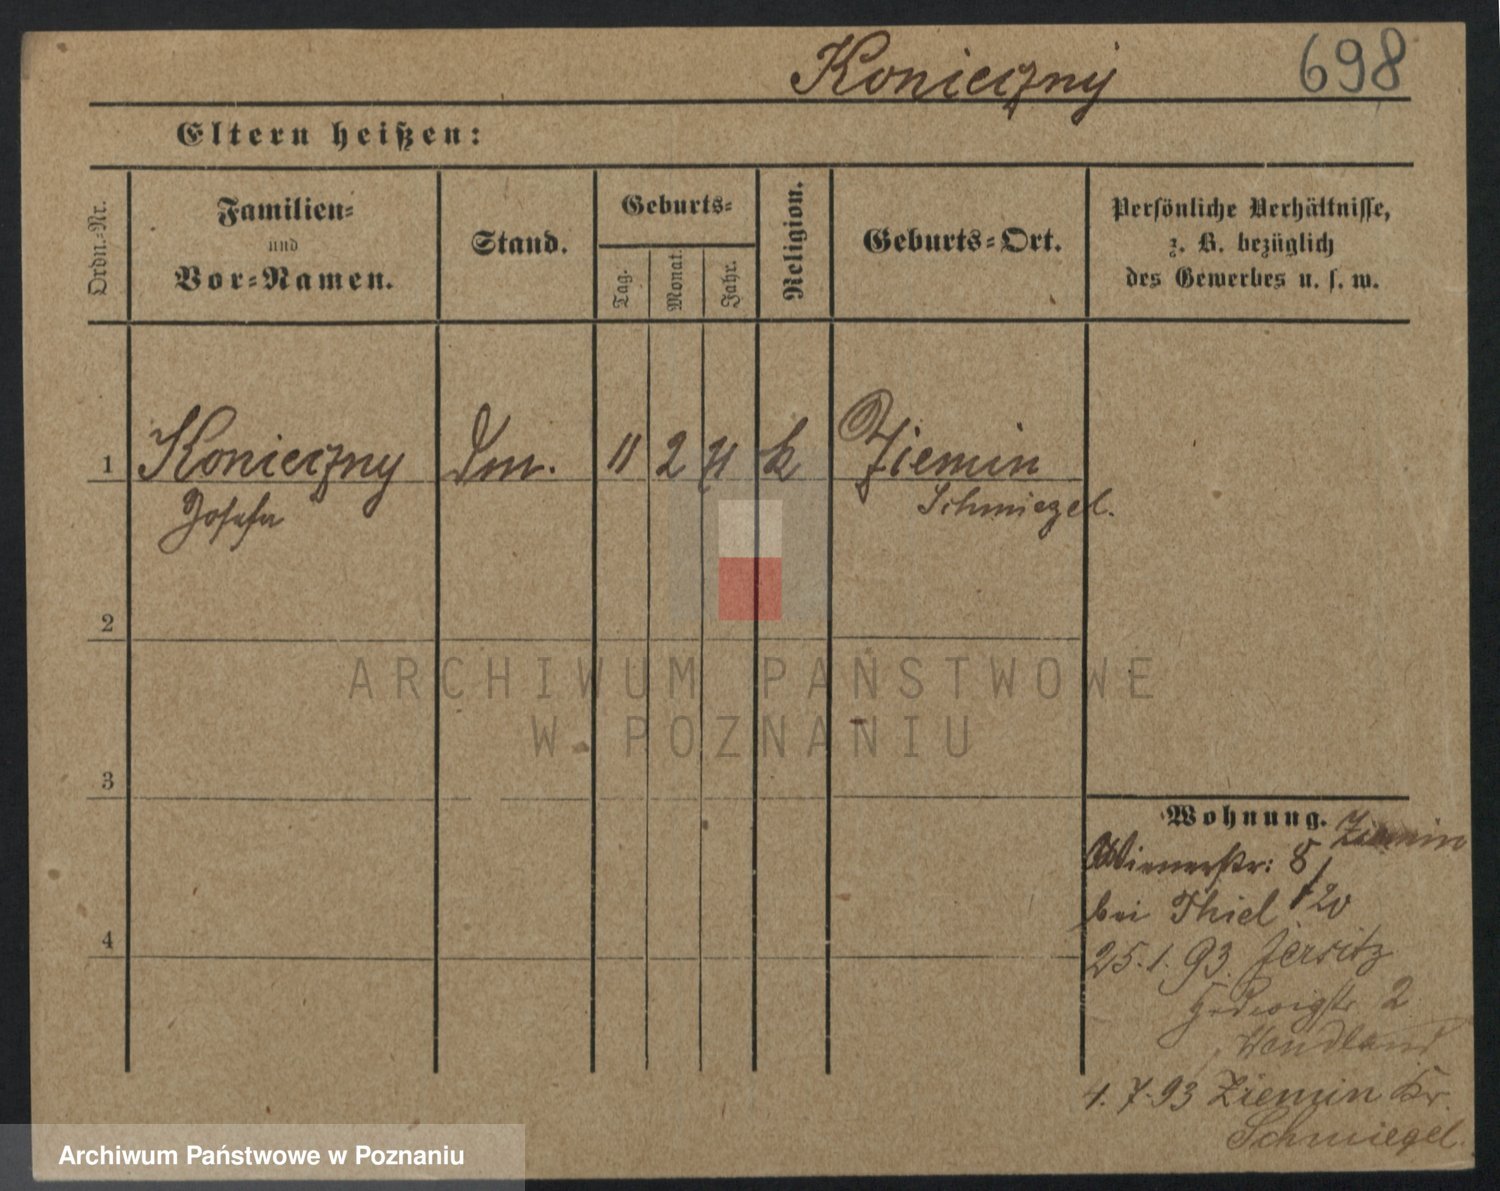 Konieczny 698
Eltern heißen:
Ordn.=Nr.
Familien=
und
Vor=Namen.
Stand.
Geburts=
Tag.
Monat.
Jahr.
Religion.
Geburts=Ort.
Persönliche Verhältnisse,
z. B. bezüglich
des Gewerbes u. s. w.
1 Konieczny 11 2 71 k Ziemin
Josefa Schmiegel.
2
3
4
Wohnung. Ziemin
Wienerstr: 8/
bei Thiel 20
25.1.93. Jersitz
Hedwigstr 2
Wendland
4.7.93 Ziemin Kr.
Schmiegel.
ARCHIWUM PAŃSTWOWE
W POZNANIU
Archiwum Państwowe w Poznaniu